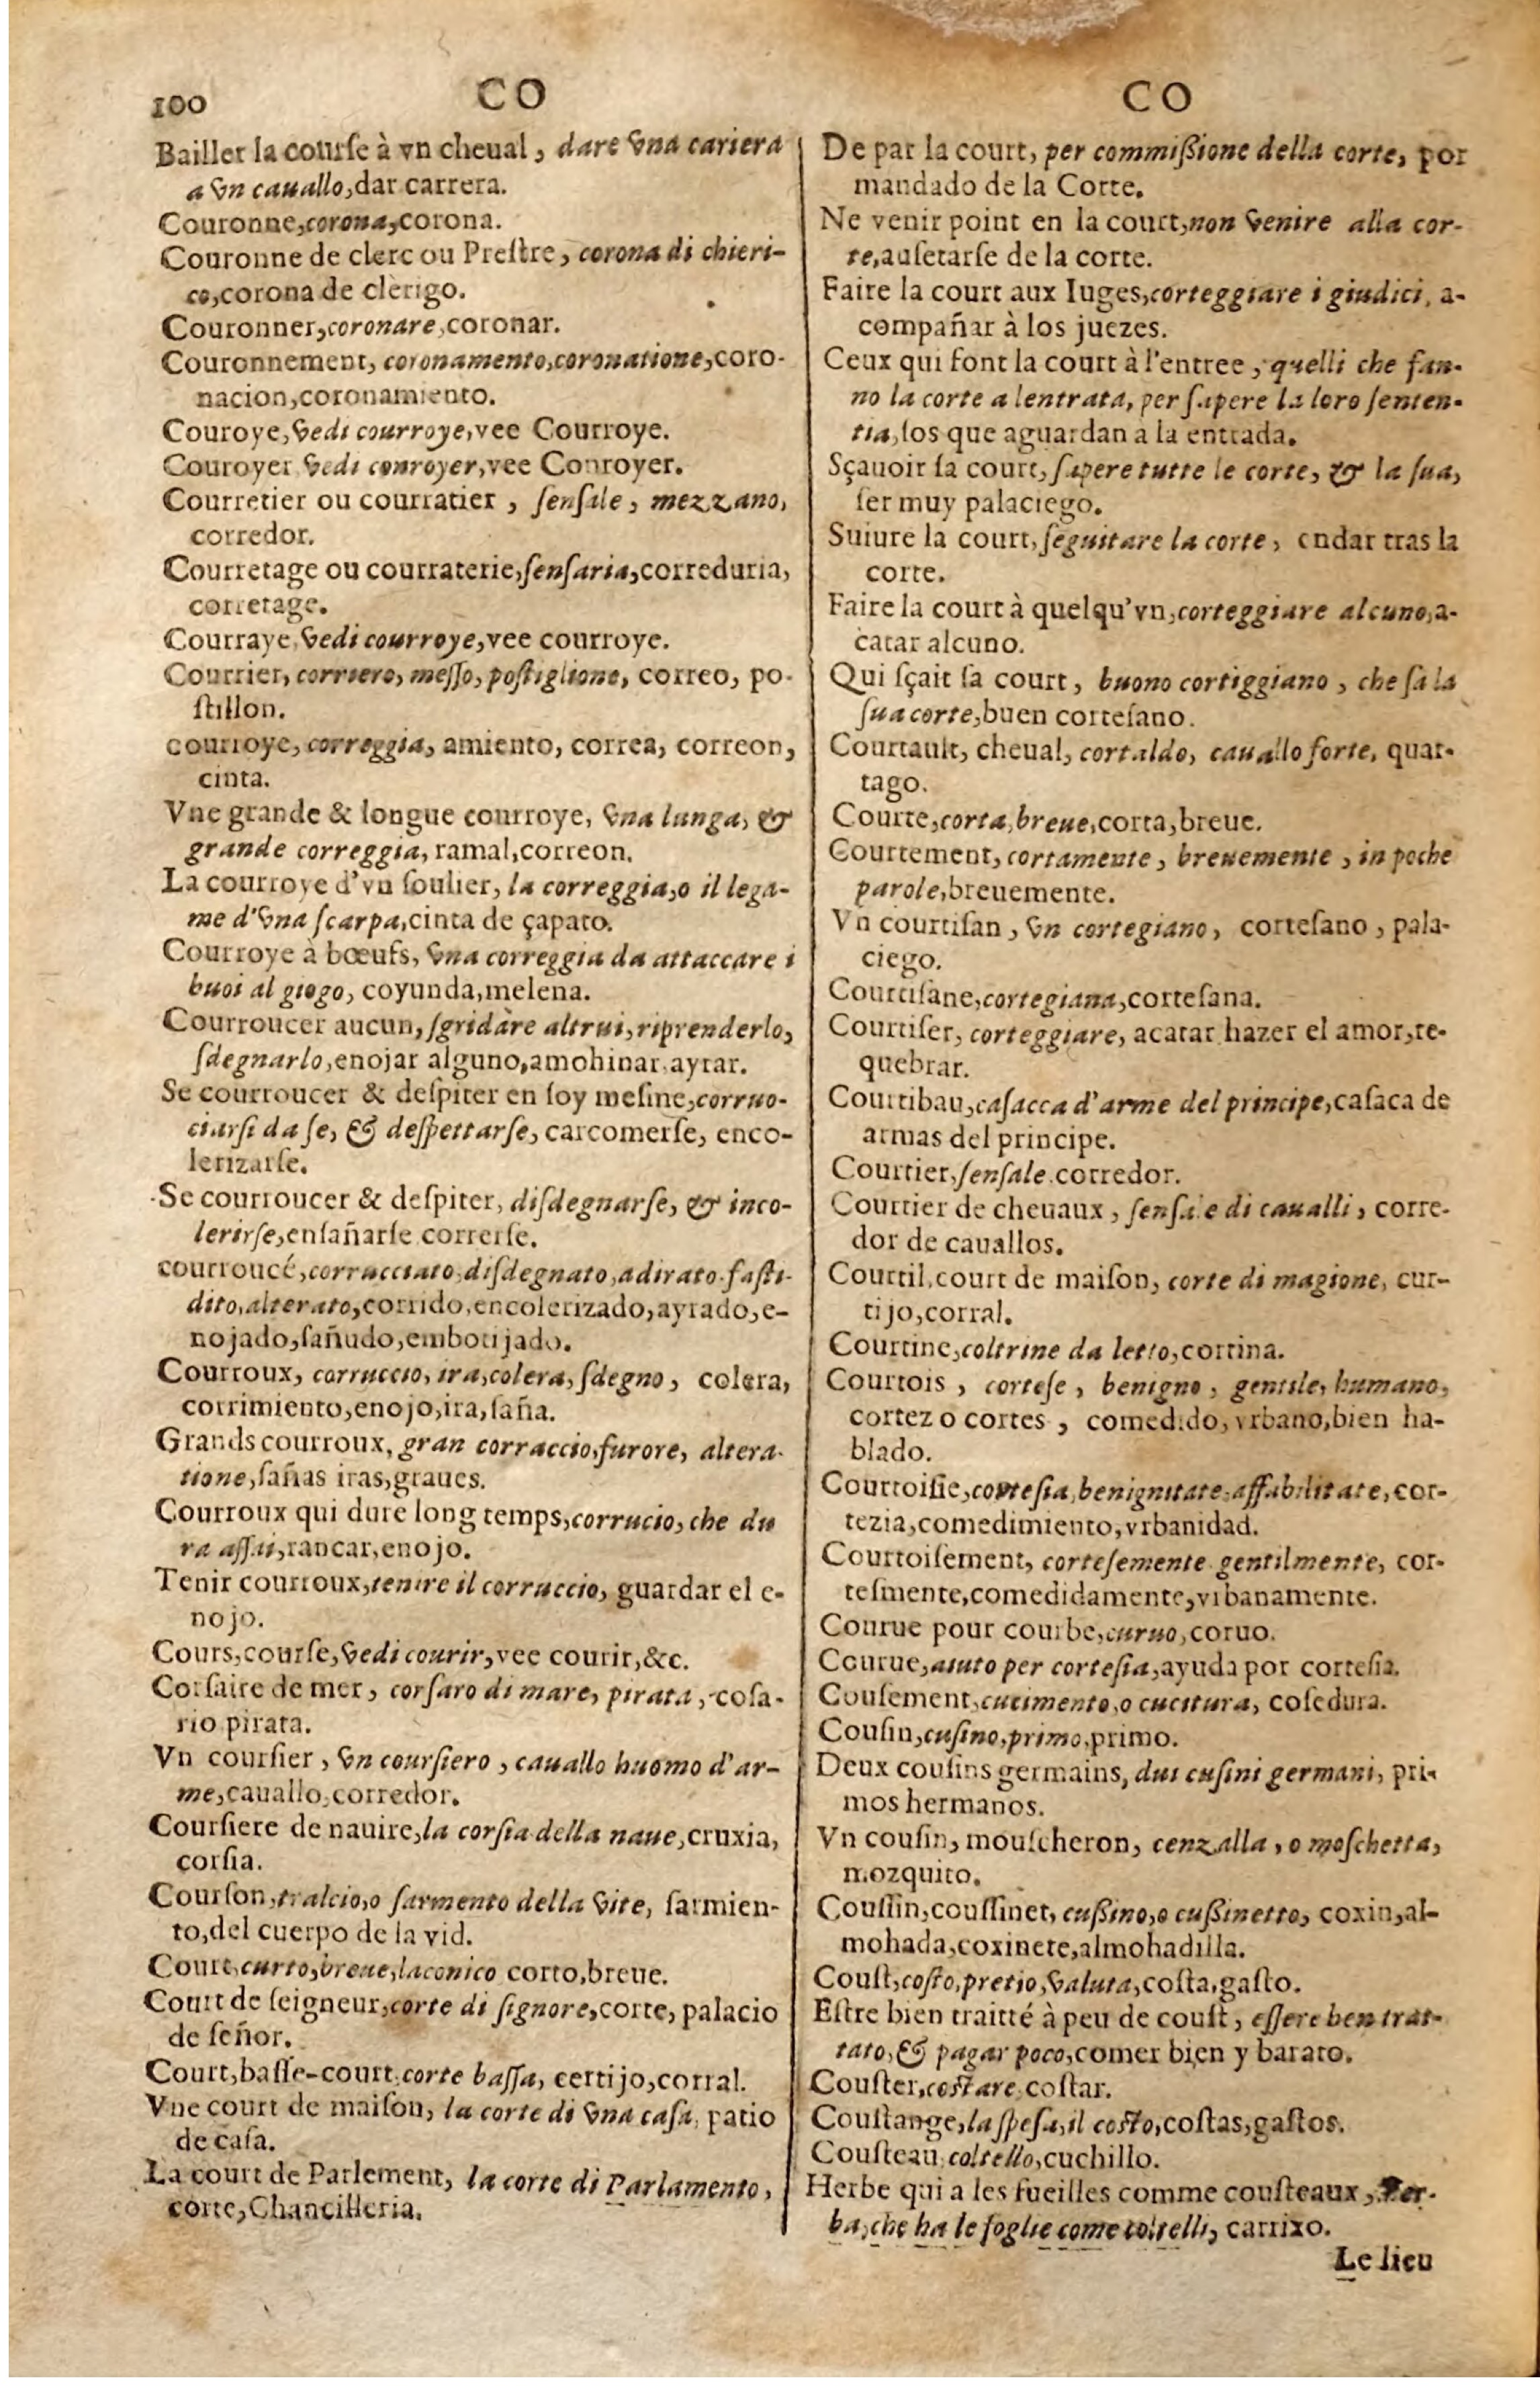 100
CO
CO
Bailler la courſe à vn cheual, dare vna cariera
a vn cauallo,dar carrera.
Couronne,corona,corona.
Couronne de clerc ou Preſtre, corona di chieri-
co,corona de clerigo.
Couronner,coronare,coronar.
Couronnement, coronamento,coronatione,coro-
nacion,coronamiento.
Couroye,vedi courroye,vee Courroye.
Couroyer vedi conroyer,vee Conroyer.
Courretier ou courratier, ſenſale, mezzano,
corredor.
Courretage ou courraterie,ſenſaria,correduria,
corretage.
Courraye,vedi courroye,vee courroye.
Courrier, corriero, meſſo, poſtiglione, correo, po-
ſtillon.
courroye, correggia, amiento, correa, correon,
cinta.
Vne grande & longue courroye, vna lunga, &
grande correggia, ramal,correon.
La courroye d'vn ſoulier, la correggia,o il lega-
me d'vna ſcarpa,cinta de çapato.
Courroye à bœufs, vna correggia da attaccare i
buoi al giogo, coyunda,melena.
Courroucer aucun, ſgridare altrui,riprenderlo,
ſdegnarlo,enojar alguno,amohinar,ayrar.
Se courroucer & deſpiter en ſoy meſme,corruo-
ciarſi da ſe, & deſpettarſe, carcomerſe, enco-
lerizarſe.
Se courroucer & deſpiter, diſdegnarſe, & inco-
lerirſe,enſañarſe correrſe.
courroucé,corrucciato,diſdegnato,adirato.faſti-
dito,alterato,corrido,encolerizado,ayrado,e-
nojado,ſañudo,embotijado.
Courroux, corruccio, ira,colera, ſdegno, colera,
corrimiento,enojo,ira,ſaña.
Grands courroux, gran corraccio,furore, altera-
tione,ſañas iras,graues.
Courroux qui dure long temps,corrucio, che du
ra aſſai,rancar,enojo.
Tenir courroux,tenire il corruccio, guardar el e-
nojo.
Cours,courſe,vedi courir,vee courir,&c.
Corſaire de mer, corſaro di mare, pirata, coſa-
rio pirata.
Vn courſier, vn courſiero, cauallo huomo d'ar-
me,cauallo,corredor.
Courſiere de nauire,la corſia della naue,cruxia,
corſia.
Courſon,tralcio,o ſarmento della vite, ſarmien-
to,del cuerpo de la vid.
Court,curto,breue,laconico corto,breue.
Court de ſeigneur,corte di ſignore,corte, palacio
de ſeñor.
Court,baſſe-court,corte baſſa, certijo,corral.
Vne court de maiſon, la corte di vna caſa, patio
de caſa.
La court de Parlement, la corte di Parlamento,
corte,Chancilleria.
De par la court, per commiſſione della corte, por
mandado de la Corte.
Ne venir point en la court,non venire alla cor-
te,auſetarſe de la corte.
Faire la court aux Iuges,corteggiare i giudici, a-
compañar à los juezes.
Ceux qui font la court à l'entree, quelli che fan-
no la corte a lentrata, per ſapere la loro ſenten-
tia,los que aguardan a la entrada.
Sçauoir ſa court, ſapere tutte le corte, & la ſua,
ſer muy palaciego.
Suiure la court, ſeguitare la corte, endar tras la
corte.
Faire la court à quelqu'vn,corteggiare alcuno,a-
catar alcuno.
Qui ſçait ſa court, buono cortiggiano, che ſa la
ſua corte,buen corteſano.
Courtault, cheual, cortaldo, cauallo forte, quar-
tago.
Courte,corta,breue,corta,breue.
Courtement, cortamente, breuemente, in poche
parole,breuemente.
Vn courtiſan, vn cortegiano, corteſano, pala-
ciego.
Courtiſane,cortegiana,corteſana.
Courtiſer, corteggiare, acatar hazer el amor,re-
quebrar.
Courtibau,caſacca d'arme del principe,caſaca de
armas del principe.
Courtier,ſenſale corredor.
Courtier de cheuaux, ſenſale di caualli, corre-
dor de cauallos.
Courtil,court de maiſon, corte di magione, cur-
tijo,corral.
Courtine,coltrine da letto,cortina.
Courtois, corteſe, benigno, gentile, humano,
cortez o cortes, comedido,vrbano,bien ha-
blado.
Courtoiſie,corteſia,benignitate,affabilitate,cor-
tezia,comedimiento,vrbanidad.
Courtoiſement, corteſemente gentilmente, cor-
teſmente,comedidamente,vrbanamente.
Courue pour courbe,curuo,coruo.
Courue,aiuto per corteſia,ayuda por corteſia.
Couſement,cucimento,o cucitura, coſedura.
Couſin,cuſino,primo,primo.
Deux couſins germains, dui cuſini germani, pri-
mos hermanos.
Vn couſin, mouſcheron, cenzalla, o moſchetta,
mozquito.
Couſſin,couſſinet, cuſſino,o cuſſinetto, coxin,al-
mohada,coxinete,almohadilla.
Couſt,coſto,pretio,valuta,coſta,gaſto.
Eſtre bien traitté à peu de couſt, eſſere ben trat-
tato,& pagar poco,comer bien y barato.
Couſter,coſtare coſtar.
Couſtange,la ſpeſa,il coſto,coſtas,gaſtos.
Couſteau,coltello,cuchillo.
Herbe qui a les fueilles comme couſteaux, Her-
ba,che ha le foglie come coltelli, carrixo.
Le lieu